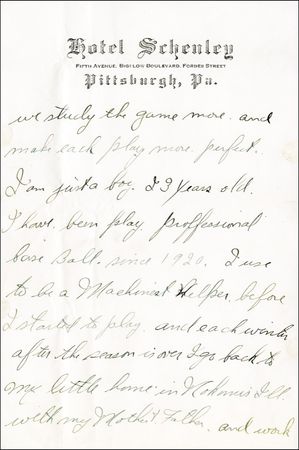 Hotel Schenley
FIFTH AVENUE, BIGELOW BOULEVARD, FORBES STREET
Pittsburgh, Pa.
we study the game more. and
make each play more. perfect.
I'am just a boy. 23 years old.
I have. been play. proffessional
base Ball. since 1920. I use
to be a Machenest Helper before
I started to play. and each winter
after the season is over I go back to
my little home in Nokomis Ill.
with my Mother Father. and work